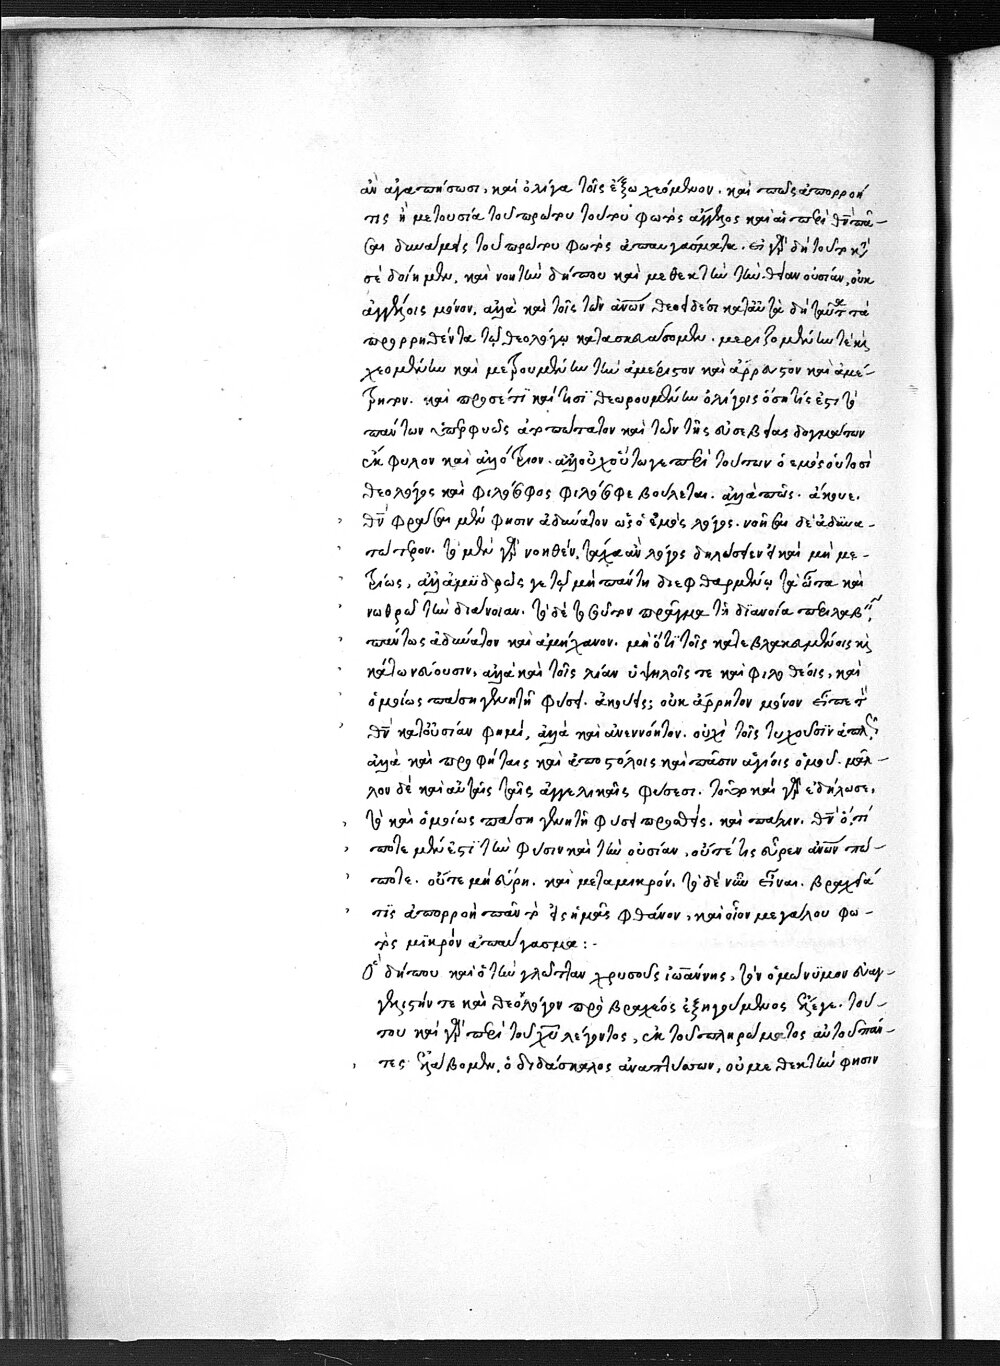 ἂν ἀγαπήσωσι, καὶ ὀλίγα τοῖς ἔξω χεόμενον. καὶ πῶς ἀπορροή
τις ἢ μετουσία τοῦ πρώτου τούτου φωτὸς ἄγγελος καὶ αἱ περὶ θν̅
δυνάμεις τοῦ πρώτου φωτὸς ἀπαυγάσματα. εἰ γὰρ δὴ τοῦτο
δοίημεν, καὶ νοητὴν δήπου καὶ μεθεκτὴν τὴν θείαν οὐσίαν, οὐκ
ἀγγέλοις μόνον, ἀλλὰ καὶ τοῖς τῶν ἀνω̅ν θεοειδέσι κατὰ ταὐτὰ δὴ ταῦτα τὰ
προρρηθέντα τῷ θεολόγῳ κατασκευάσομεν. μεριζομένην τε καὶ
χεομένην καὶ μετρουμένην τὴν ἀμέριστον καὶ ἄρρευστον καὶ ἀμέ-
τρητον. καὶ προσέτι καί τισι θεωρουμένην ὀλίγοις ὅση τίς ἐστι τὸ
πάντων ὑπερφυῶς ἀτοπώτατον καὶ τῶν τῆς εὐσεβείας δογμάτων
ἔκφυλον καὶ ἀλλότριον. ἀλλ' οὐχ οὕτω γε περὶ τούτων ὁ ἐμὸς οὑτοσὶ
θεολόγος καὶ φιλόσοφος φιλοσοφεῖ βούλεται. ἀλλὰ πῶς. ἄκουε.
θν̅ φράσαι μὲν φησὶν ἀδύνατον ὡς ὁ ἐμὸς λόγος. νοῆσαι δὲ ἀδυνα-
τώτερον. τὸ μὲν γὰρ νοηθέν, τάχα ἂν λόγος δηλώσειεν εἰ καὶ μὴ με-
τρίως, ἀλλ' ἀμυδρῶς γε τῷ μὴ πάντη διεφθαρμένῳ τὰ ὦτα καὶ
νωθρῷ τὴν διάνοιαν. τὸ δὲ τοσοῦτον πρᾶγμα τῇ διανοίᾳ περιλαβεῖν,
πάντως ἀδύνατον καὶ ἀμήχανον. μὴ ὅτι τοῖς καταβλακευμένοις καὶ
κάτω νεύουσιν, ἀλλὰ καὶ τοῖς λίαν ὑψηλοῖς τε καὶ φιλοθέοις, καὶ
ὁμοίως πάσῃ γενητῇ φύσει. ἀκούεις; οὐκ ἄρρητον μόνον εἶπε τὸν
θν̅ κατ' οὐσίαν φημί, ἀλλὰ καὶ ἀνεννόητον. οὐχὶ τοῖς τυχοῦσιν ἁπλῶς,
ἀλλὰ καὶ προφήταις καὶ ἀποστόλοις καὶ πᾶσιν ἁγίοις ὁμοῦ. μᾶλ-
λον δὲ καὶ αὐταῖς ταῖς ἀγγελικαῖς φύσεσι. τοῦτο καὶ γὰρ ἐδήλωσε,
τὸ καὶ ὁμοίως πάσῃ γενητῇ φύσει προσθείς. καὶ πάλιν. θν̅ ὅ, τί
ποτε μέν ἐστι τὴν φύσιν καὶ τὴν οὐσίαν, οὔτέ τις εὗρεν ἀνω̅ν πώ-
ποτε. οὔτε μὴ εὕρῃ. καὶ μετὰ μικρόν. τὸ δὲ νῦν εἶναι. βραχεῖά
τις ἀπορροὴ πᾶν τὸ εἰς ἡμᾶς φθάνον, καὶ οἷον μεγάλου φω-
τὸς μικρὸν ἀπαύγασμα:-
Ὁ δήπου καὶ ὁ τὴν γλῶτταν χρυσοῦς ἰωάννης, τὸν ὁμώνυμον εὐαγ-
γελιστήν τε καὶ θεολόγον πρὸ βραχέος ἐξηγούμενος ἔλεγε. τού-
του καὶ γὰρ περὶ τοῦ χυ̅ λέγοντος, ἐκ τοῦ πληρώματος αὐτοῦ πάν-
τες ἐλάβομεν, ὁ διδάσκαλος ἀναπτύσσων, οὐ μεθεκτὴν φησὶν